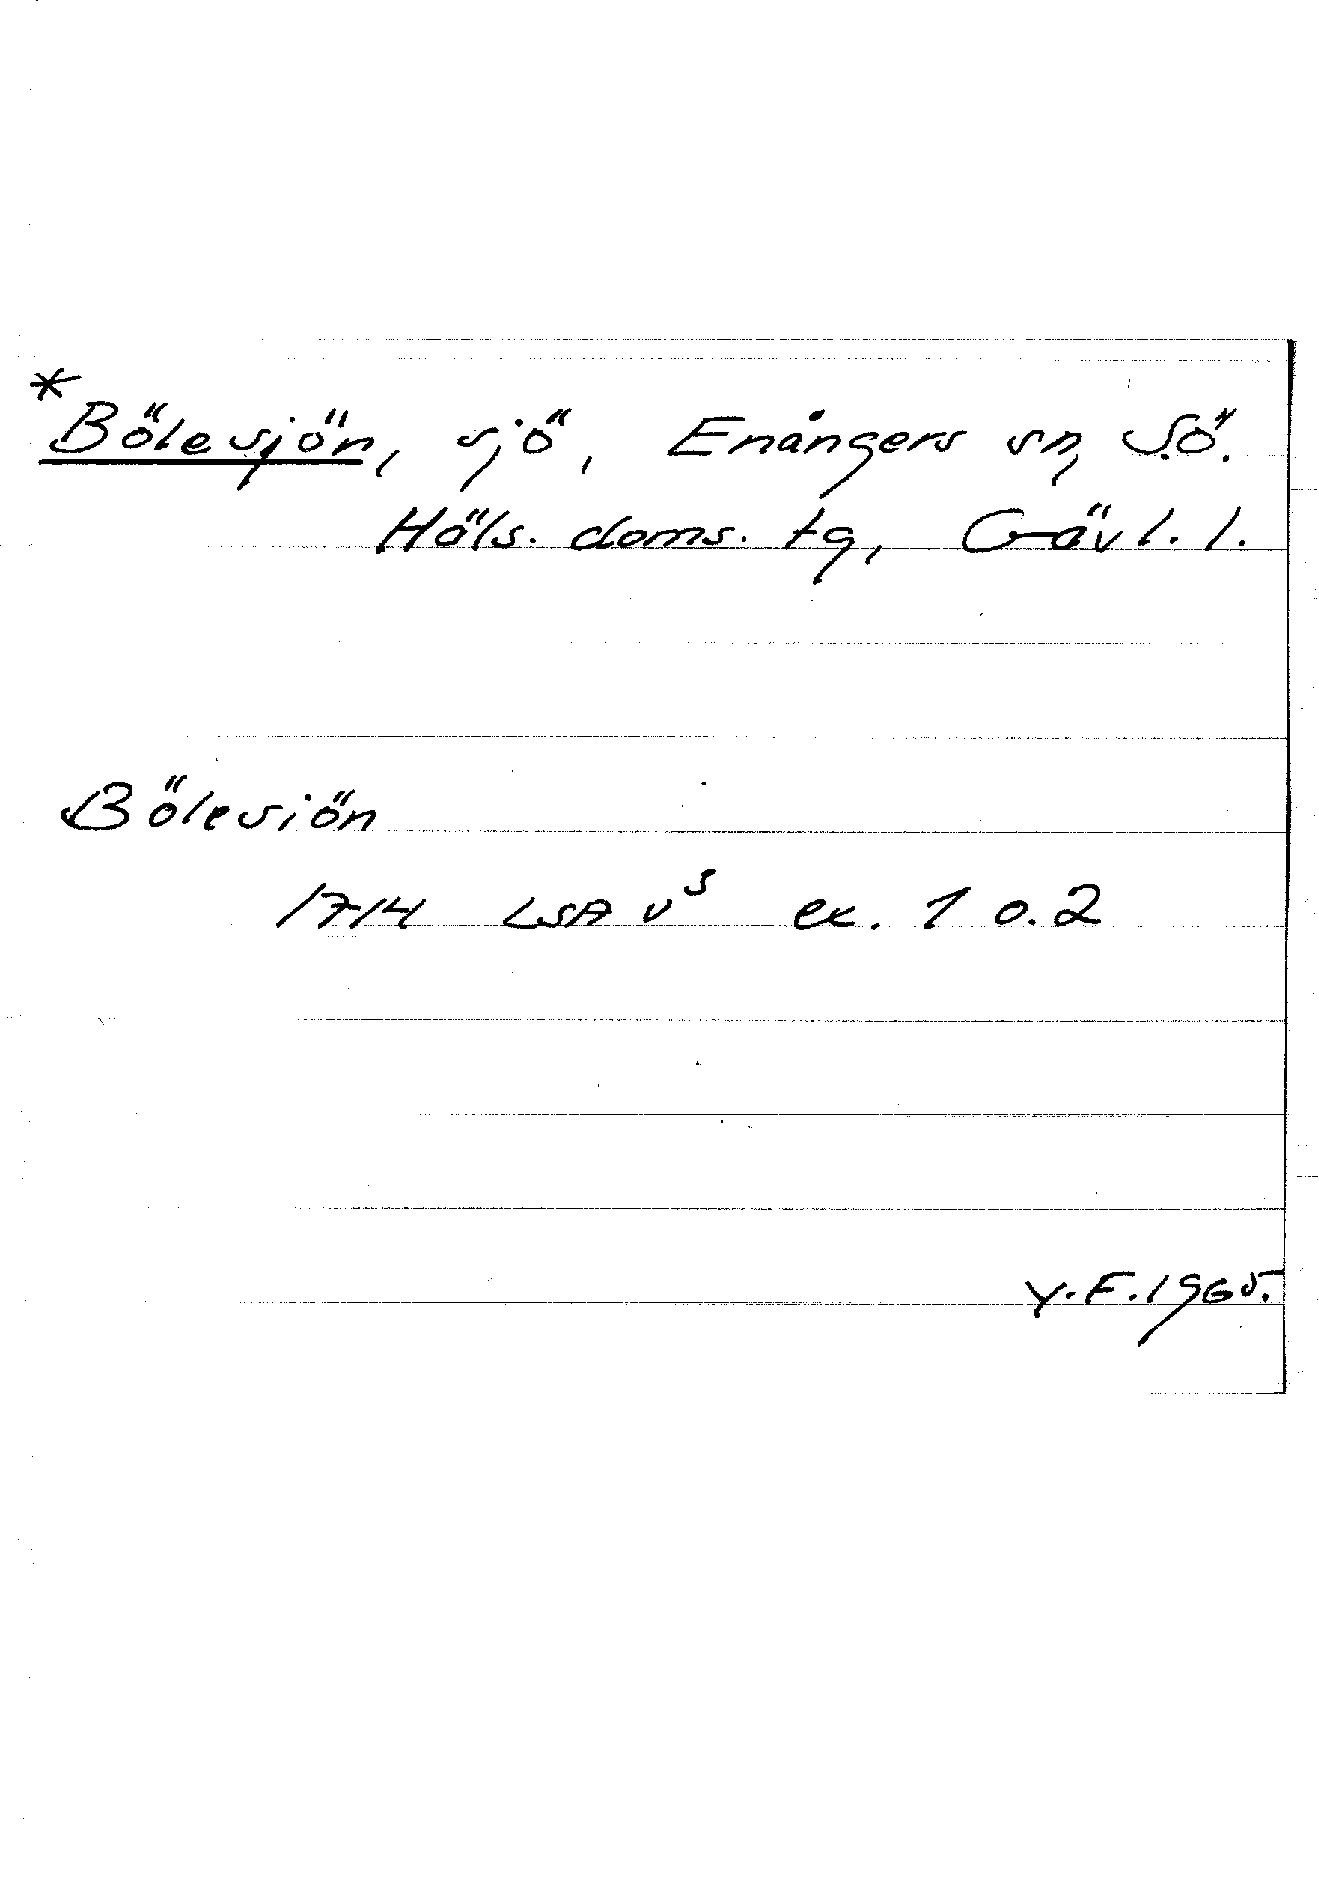 *Bölesjön, sjö, Enångers sn, S.Ö.
Häls. doms. tg, Gävl. l.
Bölesiön
1714 LSA v⁵ ex. 1 o. 2
Y.F. 1965.